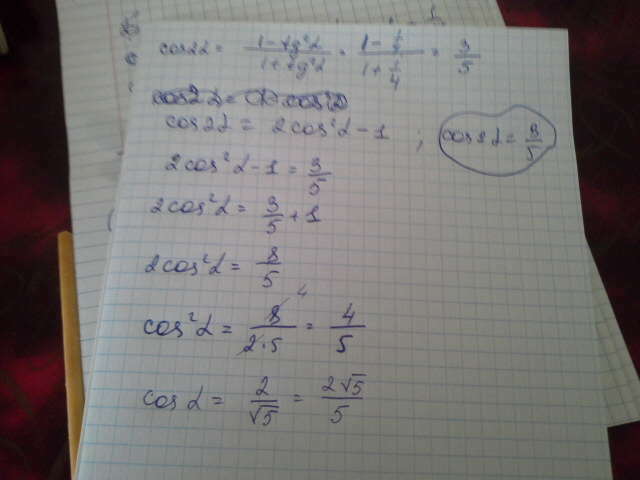 cos2α = (1 - tg²α)/(1 + tg²α) = (1 - 1/4)/(1 + 1/4) = 3/5
cos2α = 2cos²α - 1 ; cos2α = 3/5
2cos²α - 1 = 3/5
2cos²α = 3/5 + 1
2cos²α = 8/5
cos²α = 8/(2·5) 4 = 4/5
cos α = 2/√5 = 2√5/5